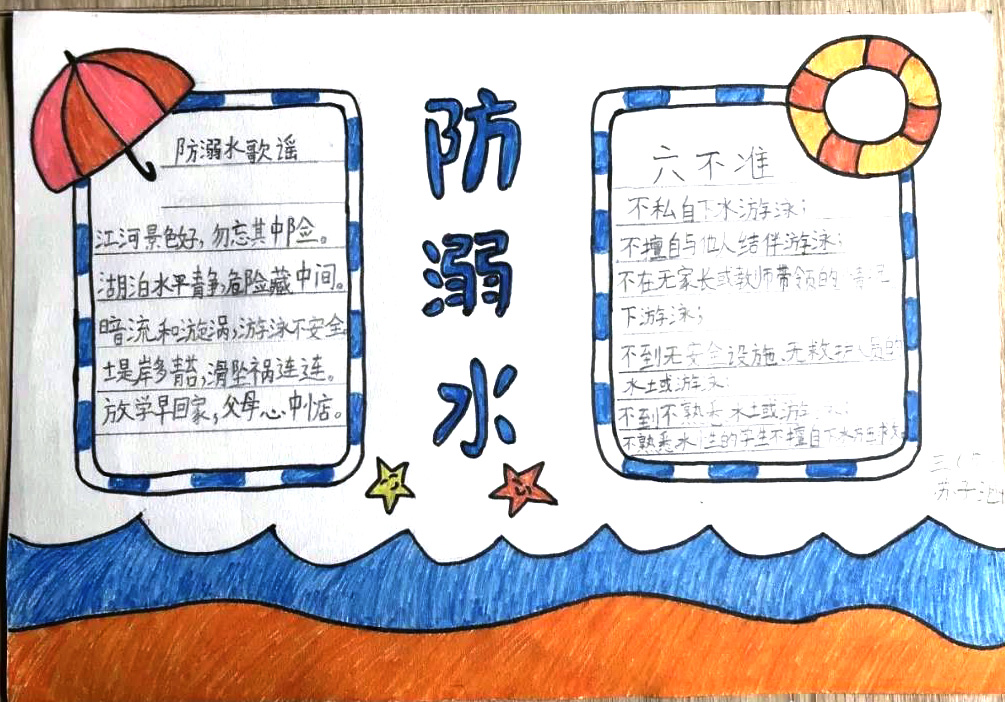 防溺水歌谣
江河景色好，勿忘其中险。
湖泊水平静，危险藏中间。
暗流和漩涡，游泳不安全
堤岸多青苔，滑坠祸连连。
放学早回家，父母心中惦。
防溺水
六不准
不私自下水游泳；
不擅自与他人结伴游泳；
不在无家长或教师带领的情况
下游泳；
不到无安全设施、无救护人员的
水
不到不熟悉水
不熟悉水性的学生不擅自下水